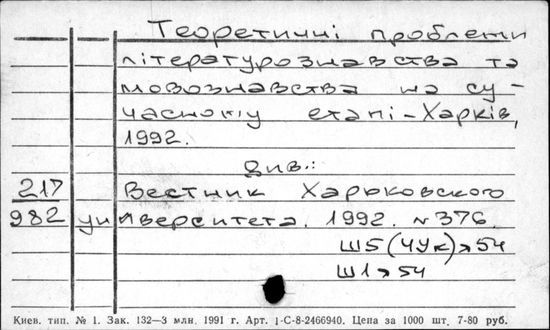 Теоретичні проблеми
літературознавства та
мовознавства на су-
часному етапі – Харків,
1992.
див.:
217 Вестник Харьковского
982 университета. 1992. №376.
Ш5(4Ук)я54
Ш1я54
Киев. тип. № 1. Зак. 132—3 млн. 1991 г. Арт. 1-С-8-2466940. Цена за 1000 шт. 7-80 руб.